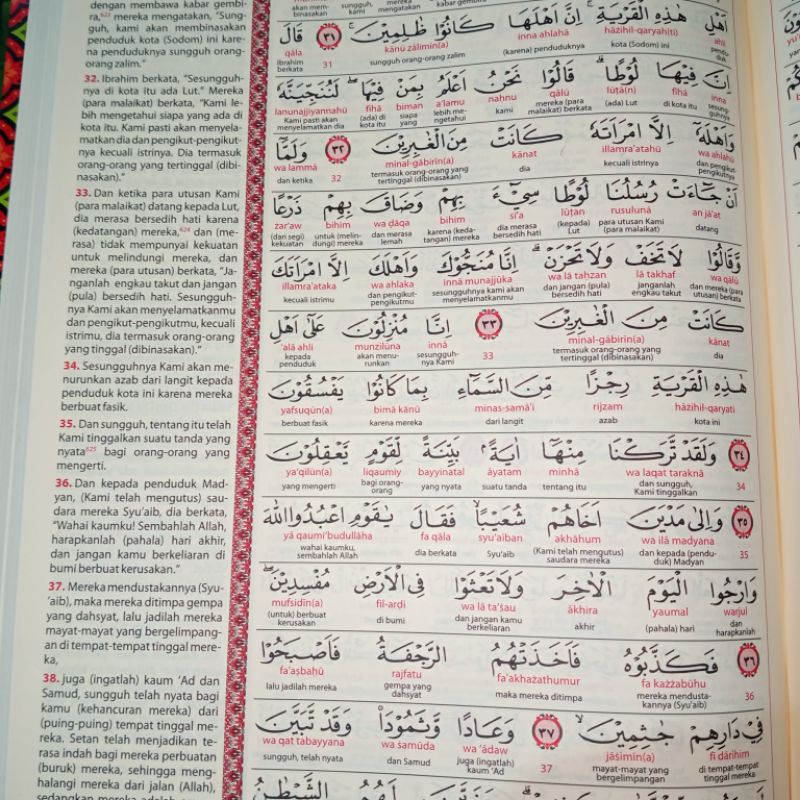 dengan membawa kabar gembi-
ra,⁶²³ mereka mengatakan, "Sung-
guh, kami akan membinasakan
penduduk kota (Sodom) ini kare-
na penduduknya sungguh orang-
orang zalim."
32. Ibrahim berkata, "Sesungguh-
nya di kota itu ada Lut." Mereka
(para malaikat) berkata, "Kami le-
bih mengetahui siapa yang ada di
kota itu. Kami pasti akan menyela-
matkan dia dan pengikut-pengikut-
nya kecuali istrinya. Dia termasuk
orang-orang yang tertinggal (dibi-
nasakan)."
33. Dan ketika para utusan Kami
(para malaikat) datang kepada Lut,
dia merasa bersedih hati karena
(kedatangan) mereka,⁶²⁴ dan (me-
rasa) tidak mempunyai kekuatan
untuk melindungi mereka, dan
mereka (para utusan) berkata, "Ja-
nganlah engkau takut dan jangan
(pula) bersedih hati. Sesungguh-
nya Kami akan menyelamatkanmu
dan pengikut-pengikutmu, kecuali
istrimu, dia termasuk orang-orang
yang tinggal (dibinasakan)."
34. Sesungguhnya Kami akan me-
nurunkan azab dari langit kepada
penduduk kota ini karena mereka
berbuat fasik.
35. Dan sungguh, tentang itu telah
Kami tinggalkan suatu tanda yang
nyata⁶²⁵ bagi orang-orang yang
mengerti.
36. Dan kepada penduduk Mad-
yan, (Kami telah mengutus) sau-
dara mereka Syu'aib, dia berkata,
"Wahai kaumku! Sembahlah Allah,
harapkanlah (pahala) hari akhir,
dan jangan kamu berkeliaran di
bumi berbuat kerusakan."
37. Mereka mendustakannya (Syu-
'aib), maka mereka ditimpa gempa
yang dahsyat, lalu jadilah mereka
mayat-mayat yang bergelimpang-
an di tempat-tempat tinggal mere-
ka,
38. juga (ingatlah) kaum 'Ad dan
Samud, sungguh telah nyata bagi
kamu (kehancuran mereka) dari
(puing-puing) tempat tinggal me-
reka. Setan telah menjadikan te-
rasa indah bagi mereka perbuatan
(buruk) mereka, sehingga meng-
halangi mereka dari jalan (Allah),
اَهْلِ هٰذِهِ الْقَرْيَةِ ۚ اِنَّ اَهْلَهَا كَانُوْا ظٰلِمِيْنَ ۚ ٣١ قَالَ
qāla kānū ẓālimīn(a) inna ahlahā hāżihil-qaryah(ti) ahli
Ibrahim berkata 31 sungguh orang-orang zalim (karena) penduduknya kota (Sodom) ini penduduk
اِنَّ فِيْهَا لُوْطًا ۗ قَالُوْا نَحْنُ اَعْلَمُ بِمَنْ فِيْهَا ۖ لَنُنَجِّيَنَّهٗ
lanunajjiyannahū fīhā biman a'lamu nahnu qālū lūṭā(n) fīhā inna
Kami pasti akan menyelamatkan dia (ada) di kota itu siapa yang lebih me-ngetahui kami mereka (para malaikat) berkata (ada) Lut di kota itu sesung-guhnya
وَاَهْلَهٗٓ اِلَّا امْرَاَتَهٗ كَانَتْ مِنَ الْغٰبِرِيْنَ ٣٢ وَلَمَّآ
wa lammā minal-gābirīn(a) kānat illamra'atahū wa ahlahū
dan ketika 32 termasuk orang-orang yang tertinggal (dibinasakan) dia kecuali istrinya dan pengikut-pengikutnya
اَنْ جَاۤءَتْ رُسُلُنَا لُوْطًا سِيْۤءَ بِهِمْ وَضَاقَ بِهِمْ ذَرْعًا
żar'aw bihim wa ḍāqa bihim sī'a lūṭan rusulunā an jā'at
(dari segi) kekuatan untuk (melin-dungi) mereka dan merasa lemah karena (keda-tangan) mereka dia merasa bersedih hati (kepada) Lut para utusan Kami (para malaikat) datang
وَّقَالُوْا لَا تَخَفْ وَلَا تَحْزَنْ ۗ اِنَّا مُنَجُّوْكَ وَاَهْلَكَ اِلَّا امْرَاَتَكَ
illamra'ataka wa ahlaka innā munajjūka wa lā tahzan lā takhaf wa qālū
kecuali istrimu dan pengikut-pengikutmu sesungguhnya kami akan menyelamatkanmu dan jangan (pula) bersedih hati janganlah engkau takut dan mereka (para utusan) berkata
كَانَتْ مِنَ الْغٰبِرِيْنَ ٣٣ اِنَّا مُنْزِلُوْنَ عَلٰٓى اَهْلِ
'alā ahli munzilūna innā minal-gābirīn(a) kānat
kepada penduduk akan menu-runkan sesungguh-nya Kami 33 termasuk orang-orang yang tertinggal (dibinasakan) dia
هٰذِهِ الْقَرْيَةِ رِجْزًا مِّنَ السَّمَاۤءِ بِمَا كَانُوْا يَفْسُقُوْنَ
yafsuqūn(a) bimā kānū minas-samā'i rijzam hāżihil-qaryati
berbuat fasik karena mereka dari langit azab kota ini
٣٤ وَلَقَدْ تَّرَكْنَا مِنْهَآ اٰيَةً ۢ بَيِّنَةً لِّقَوْمٍ يَّعْقِلُوْنَ
ya'qilūn(a) liqaumiy bayyinatal āyatam minhā wa laqat taraknā
yang mengerti bagi orang-orang yang nyata suatu tanda tentang itu dan sungguh, Kami tinggalkan 34
٣٥ وَاِلٰى مَدْيَنَ اَخَاهُمْ شُعَيْبًاۙ فَقَالَ يٰقَوْمِ اعْبُدُوا اللّٰهَ
yā qaumi'budullāha fa qāla syu'aiban akhāhum wa ilā madyana
wahai kaumku, sembahlah Allah dia berkata Syu'aib (Kami telah mengutus) saudara mereka dan kepada (pendu-duk) Madyan 35
وَارْجُوا الْيَوْمَ الْاٰخِرَ وَلَا تَعْثَوْا فِى الْاَرْضِ مُفْسِدِيْنَ ۖ
mufsidīn(a) fil-arḍi wa lā ta'ṡau ākhira yaumal warjul
(untuk) berbuat kerusakan di bumi dan jangan kamu berkeliaran akhir (pahala) hari dan harapkanlah
٣٦ فَكَذَّبُوْهُ فَاَخَذَتْهُمُ الرَّجْفَةُ فَاَصْبَحُوْا
fa'aṣbaḥū rajfatu fa'akhażathumur fa każżabūhu
lalu jadilah mereka gempa yang dahsyat maka mereka ditimpa mereka mendusta-kannya (Syu'aib) 36
فِيْ دَارِهِمْ جٰثِمِيْنَ ۙ ٣٧ وَعَادًا وَّثَمُوْدَا۟ وَقَدْ تَّبَيَّنَ
wa qat tabayyana wa ṡamūda wa 'ādaw jāṡimīn(a) fī dārihim
sungguh, telah nyata dan Samud juga (ingatlah) kaum 'Ad 37 mayat-mayat yang bergelimpangan di tempat-tempat tinggal mereka